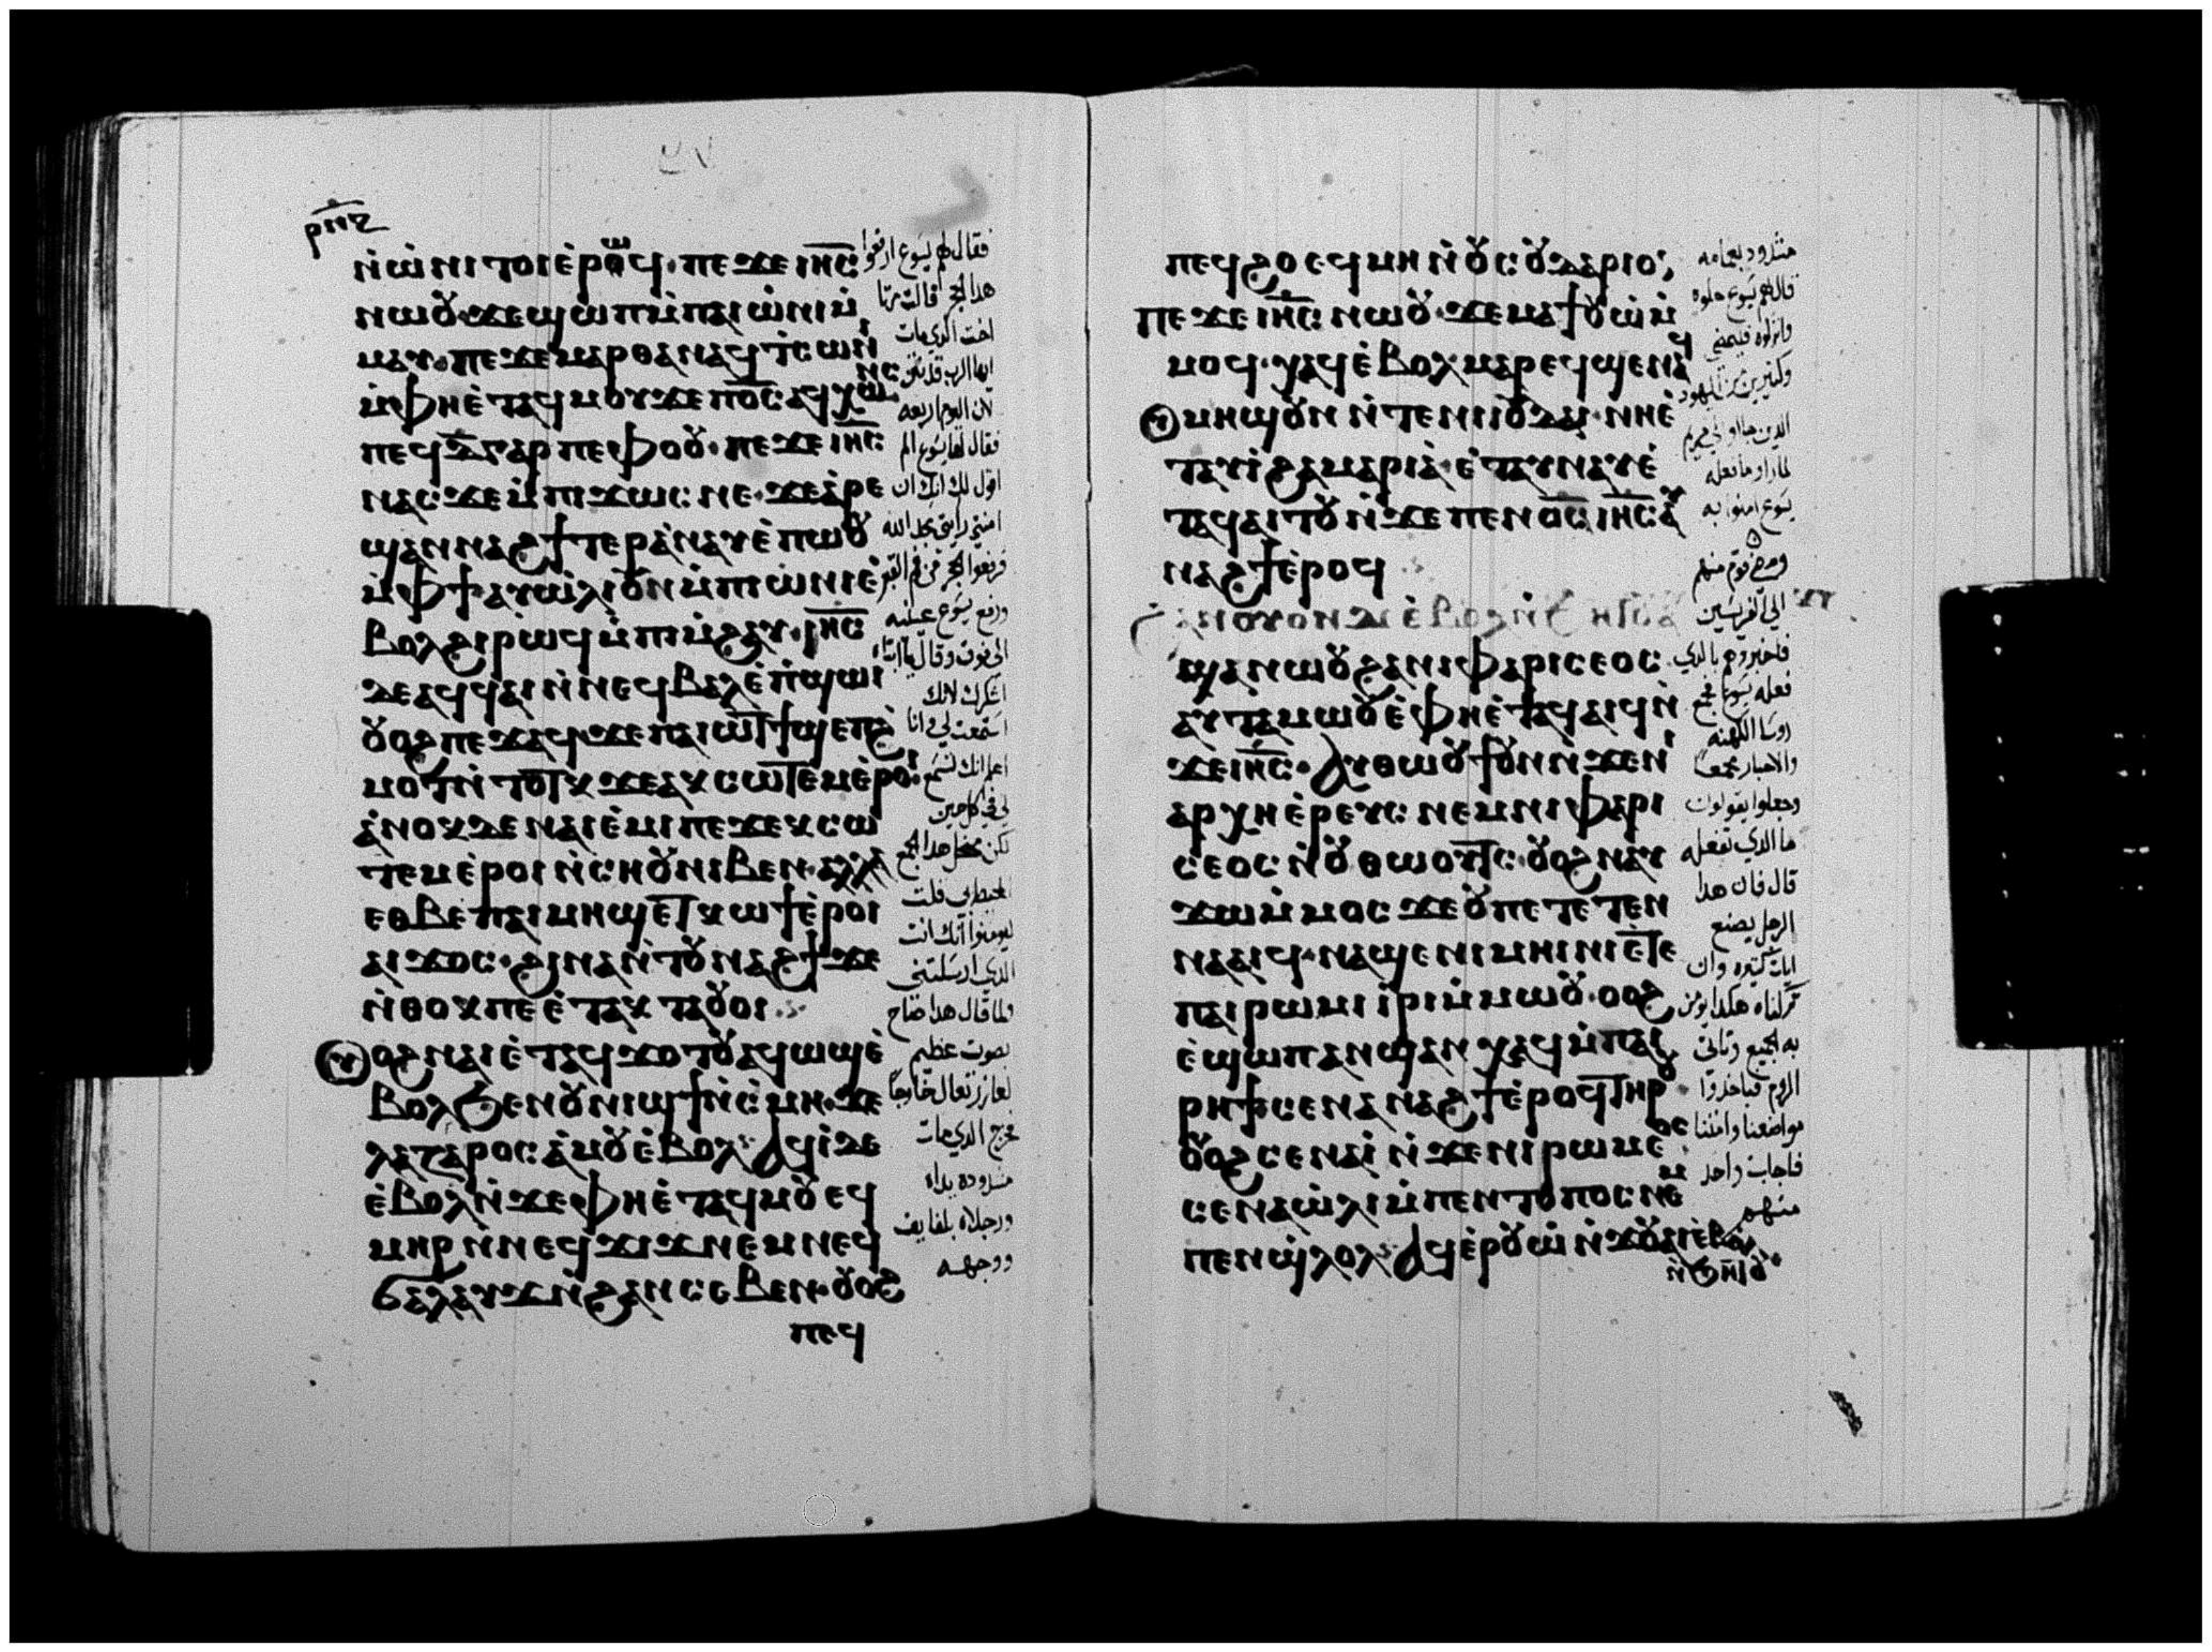 ⲣⲛⲍ
ⲛ̀ⲱ̀ⲛⲓ ⲧⲟⲓ ⲉ̀ⲣⲱϥ · ⲡⲉϫⲉ ⲓⲏ̅ⲥ̅
ⲛⲱⲟⲩ · ϫⲉ ϣⲱⲡ ⲙ̀ⲡⲁⲓⲱ̀ⲛⲓ ⲙ̀
ⲙⲁⲩ · ⲡⲉϫⲉ ⲙⲁⲣⲑⲁ ⲛⲁϥ ⲧ̀ⲥⲱⲛⲓ
ⲙ̀ⲫⲏⲉ̀ⲧⲁϥⲙⲟⲩ ϫⲉ ⲡⲟ̅ⲥ̅ ⲁϥⲭⲱⲛⲥ
ⲡⲉϥⲇ̅ ⲅⲁⲣ ⲡⲉ ⲫⲟⲟⲩ · ⲡⲉϫⲉ ⲓⲏ̅ⲥ̅
ⲛⲁⲥ ϫⲉ ⲙ̀ⲡⲓϫⲱⲥ ⲛⲉ · ϫⲉ ⲁ̀ⲣⲉ
ϣⲁⲛⲛⲁϩϯ ⲧⲉⲣⲁ̀ⲛⲁⲩ ⲉ̀ⲡⲱⲟⲩ
ⲙ̀ⲫϯ ⲁⲩⲱ̀ⲗⲓ ⲟⲩⲛ ⲙ̀ⲡⲓⲱ̀ⲛⲓ ⲉ̀
ⲃⲟⲗϩⲓⲣⲱϥ ⲙ̀ⲡⲓⲙ̀ϩⲁⲩ · ⲓⲏ̅ⲥ̅
ⲇⲉ ⲁϥϥⲁⲓ ⲛ̀ⲛⲉϥⲃⲁⲗ ⲉ̀ⲡ̀ϣⲱⲓ
ⲟⲩⲟϩ ⲡⲉϫⲁϥ · ϫⲉ ⲡⲁⲓⲱⲧ ϯϣⲉⲡϩ̀
ⲙⲟⲧ ⲛ̀ⲧⲟⲧⲕ ϫⲉ ⲁⲕⲥⲱⲧⲉⲙ ⲉ̀ⲣⲟⲓ
ⲁ̀ⲛⲟⲕ ⲇⲉ ⲛⲁⲓⲉ̀ⲙⲓ ⲡⲉ ϫⲉ ⲕⲥⲱ
ⲧⲉⲙ ⲉ̀ⲣⲟⲓ ⲛ̀ⲥⲏⲟⲩ ⲛⲓⲃⲉⲛ · ⲁⲗⲗⲁ
ⲉⲑⲃⲉ ⲡⲁⲓⲙⲏϣ ⲉⲧⲕⲱϯ ⲉ̀ⲣⲟⲓ
ⲁⲓϫⲟⲥ · ϩⲓⲛⲁ ⲛ̀ⲧⲟⲩⲛⲁϩϯ ϫⲉ
ⲛ̀ⲑⲟⲕ ⲡⲉ ⲉ̀ⲧⲁⲕⲧⲁⲟⲩⲟⲓ
ⲟϩ ⲛⲁⲓ ⲉ̀ⲧⲁϥϫⲟⲧⲟⲩ ⲁϥⲱϣ ⲉ̀
ⲃⲟⲗ ϧⲉⲛ ⲟⲩⲛⲓϣϯ ⲛ̀ⲥ̀ⲙⲏ · ϫⲉ
ⲗⲁⲍⲁⲣⲟⲥ ⲁ̀ⲙⲟⲩ ⲉ̀ⲃⲟⲗ ⲁϥⲓ̀ ⲇⲉ
ⲉ̀ⲃⲟⲗ ⲛ̀ϫⲉ ⲫⲏⲉ̀ⲧⲁϥⲙⲟⲩ ⲉϥ
ⲙⲏⲣ ⲛ̀ⲛⲉϥϫⲓϫ ⲛⲉⲙ ⲛⲉϥ
ϭⲁⲗⲁⲩϫ ⲛ̀ϩⲁⲛⲥⲉⲃⲉⲛ · ⲟⲩⲟϩ
ⲡⲉϥ
فقال لهم يسوع ارفعوا
هدا الحجر قالت مرتا
اخت الدي مات
لان اليوم اربعه
فقال لها يسوع الم
اقول لك انك ان
فرفعوا الحجر من فم القبر
ورفع يسوع عينيه
الى فوق وقال يا ابتاه
اشكرك لانك
استمعت لي وانا
اعلم انك تسمع
لي في كل حين
الدي ارسلتني
ولما قال هدا صاح
بصوت عظيم
لعازر تعال خارجا
فخرج الدي مات
مشدوده يداه
ورجلاه بلفايف
ووجهه
ⲡⲉϥϩⲟ ⲉϥⲙⲏⲣ ⲛ̀ⲟⲩⲥⲟⲩⲇⲁⲣⲓⲟ
ⲡⲉϫⲉ ⲓⲏ̅ⲥ̅ ⲛⲱⲟⲩ · ϫⲉ ⲙⲁϯⲟⲩⲱ̀ ⲙ̀
ⲙⲟϥ · ⲭⲁϥ ⲉ̀ⲃⲟⲗ ⲙⲁⲣⲉϥϣⲉⲛⲁϥ
ⲙⲏϣ ⲟⲩⲛ ⲛ̀ⲧⲉ ⲛⲓⲓⲟⲩⲇⲁⲓ · ⲛⲏⲉ̀
ⲧⲁⲩⲓ̀ ϩⲁ ⲙⲁⲣⲓⲁ̀ · ⲉ̀ⲧⲁⲩⲛⲁⲩ ⲉ̀
ⲧⲁϥⲁⲓⲧⲟⲩ ⲛ̀ϫⲉ ⲡⲉⲛⲟ̅ⲥ̅ ⲓⲏ̅ⲥ̅ ⲁⲩ
ⲛⲁϩϯ ⲉ̀ⲣⲟϥ
ϣⲁⲛⲱⲟⲩ ϩⲁ ⲛⲓⲫⲁⲣⲓⲥⲉⲟⲥ
ⲁⲩⲧⲁⲙⲱⲟⲩ ⲉ̀ⲫⲏⲉ̀ⲧⲁϥⲁⲓϥ ⲛ̀
ϫⲉ ⲓⲏ̅ⲥ̅ · ⲁⲩⲑⲱⲟⲩϯ ⲟⲩⲛ ⲛ̀ϫⲉ ⲛⲓ
ⲁⲣⲭⲏⲉ̀ⲣⲉⲩⲥ ⲛⲉⲙ ⲛⲓⲫⲁⲣⲓ
ⲥⲉⲟⲥ ⲛ̀ⲟⲩⲑⲱⲟⲩⲧⲥ · ⲟⲩⲟϩ ⲛⲁⲩ
ϫⲱ ⲙ̀ⲙⲟⲥ ϫⲉ ⲟⲩ ⲡⲉⲧⲉⲧⲉⲛ
ⲛⲁⲁⲓϥ · ⲛⲁϣⲉ ⲛⲓⲙⲏⲓⲛⲓ ⲉ̀ⲧⲉ
ⲡⲁⲓⲣⲱⲙⲓ ⲓ̀ⲣⲓ ⲙ̀ⲙⲱⲟⲩ · ⲟⲟϩ
ⲉ̀ϣⲱⲡ ⲁⲛϣⲁⲛⲭⲁϥ ⲙ̀ⲡⲁⲓ
ⲣⲏϯ ⲥⲉⲛⲁⲛⲁϩϯ ⲉ̀ⲣⲟϥ ⲧⲏⲣⲟⲩ
ⲟⲩⲟϩ ⲥⲉⲛⲁⲓ̀ ⲛ̀ϫⲉ ⲛⲓⲣⲱⲙⲉⲟⲥ
ⲥⲉⲛⲁⲱ̀ⲗⲓ ⲙ̀ⲡⲉⲛⲧⲟⲡⲟⲥ ⲛⲉⲙ
ⲡⲉⲛϣ̀ⲗⲟⲗ ⲁϥⲉ̀ⲣⲟⲩⲱ̀ ⲛ̀ϫⲉ ⲟⲩⲁⲓ ⲉ̀ⲃⲟⲗ
ⲛ̀ϧⲏⲧⲟⲩ
قال لهم يسوع حلوه
يسوع امنوا به
ومضى قوم منهم
الى الفريسيين
فاخبروهم بالدي
روسا الكهنه
وجعلوا يقولون
ما الدي نفعله
قال فان هدا
الرجل يصنع
ايات كتيره وان
تركناه هكدا يومن
به الجميع وتاتي
مواضعنا وامتنا
فاجاب واحد
منهم